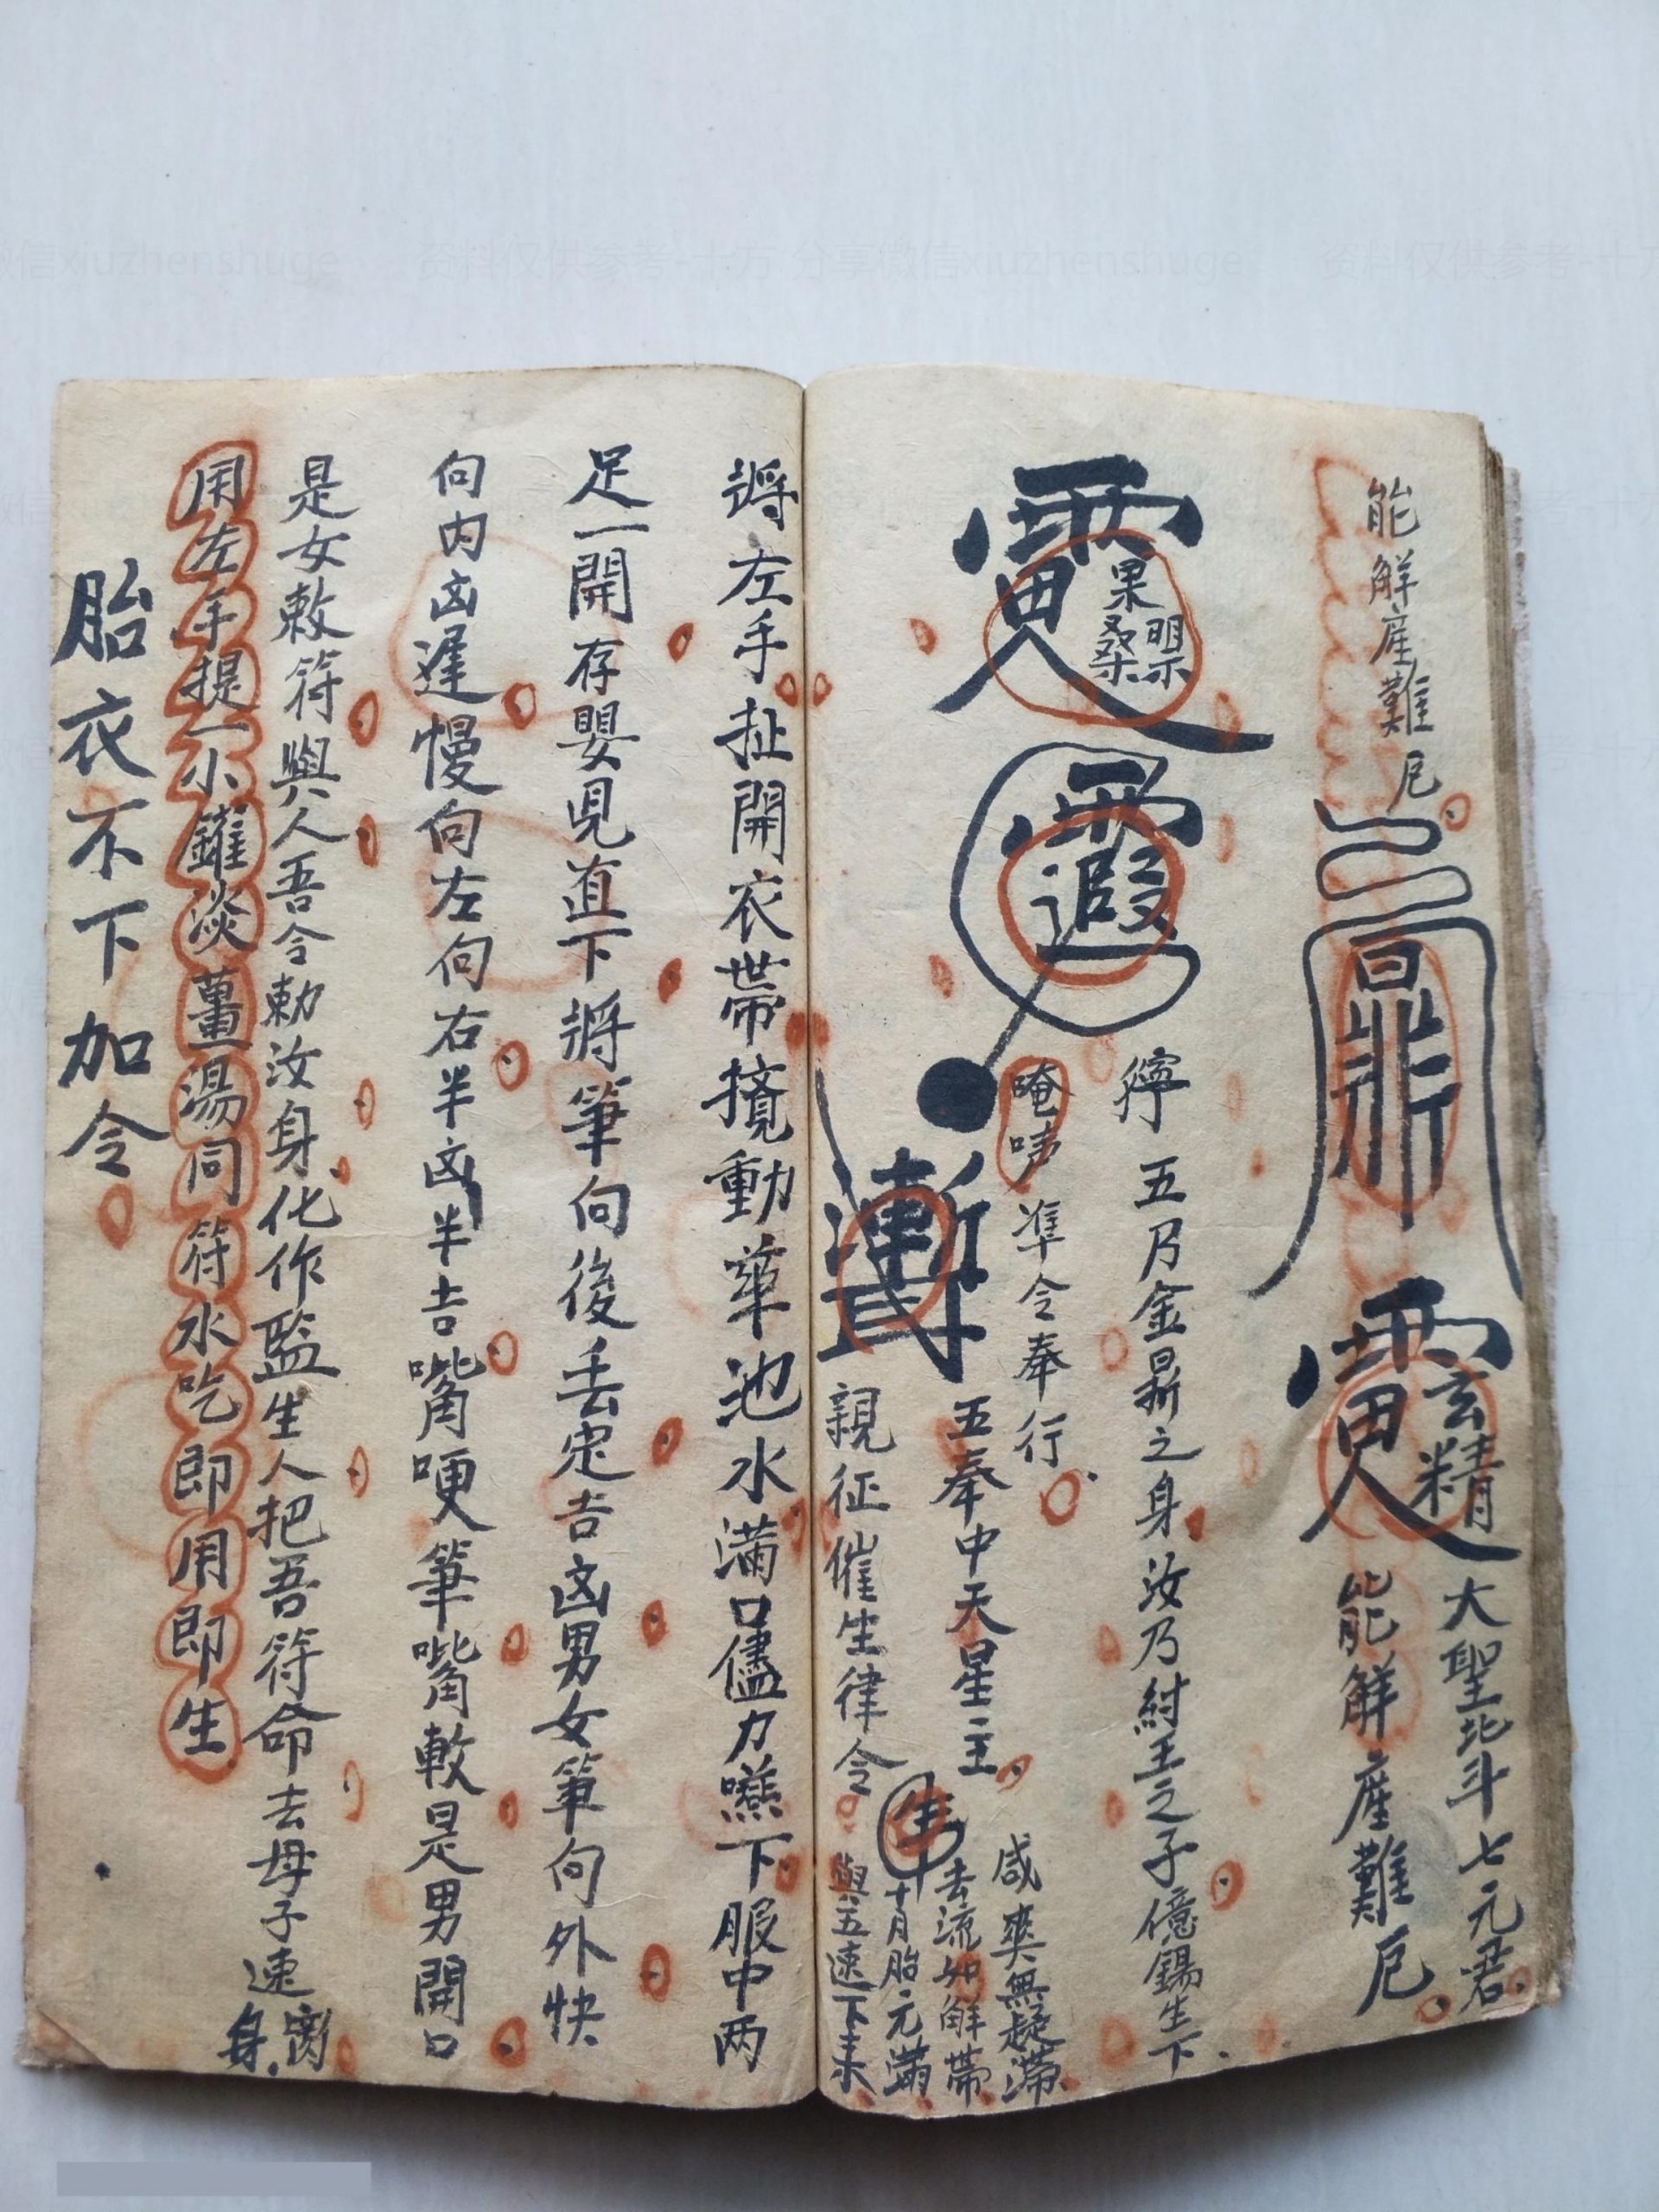 能解産難厄
大聖北斗七元君
玄精
能解産難厄
五乃金鼎之身汝乃紂王之子億錫生下
果
桑
遐
唵
准令奉行
咸奭無疑滯
五奉中天星主
去流如解帶
十月胎元滿
親征催生律令
與五速下来
将左手扯開衣帶 動華池水滿口儘力嚥下服中两
足一開存嬰児直下将筆向後丢定吉凶男女筆向外快
向内凶遲慢向左向右半凶半吉嘴角哽筆嘴角軟是男開口
是女敕符與人吾令勅汝身化作監生人把吾符命去母子速離身
用左手提一小鑵淡薑湯同符水吃即用即生
胎衣不下加令
资料仅供参考-十方 分享微信xiuzhenshuge